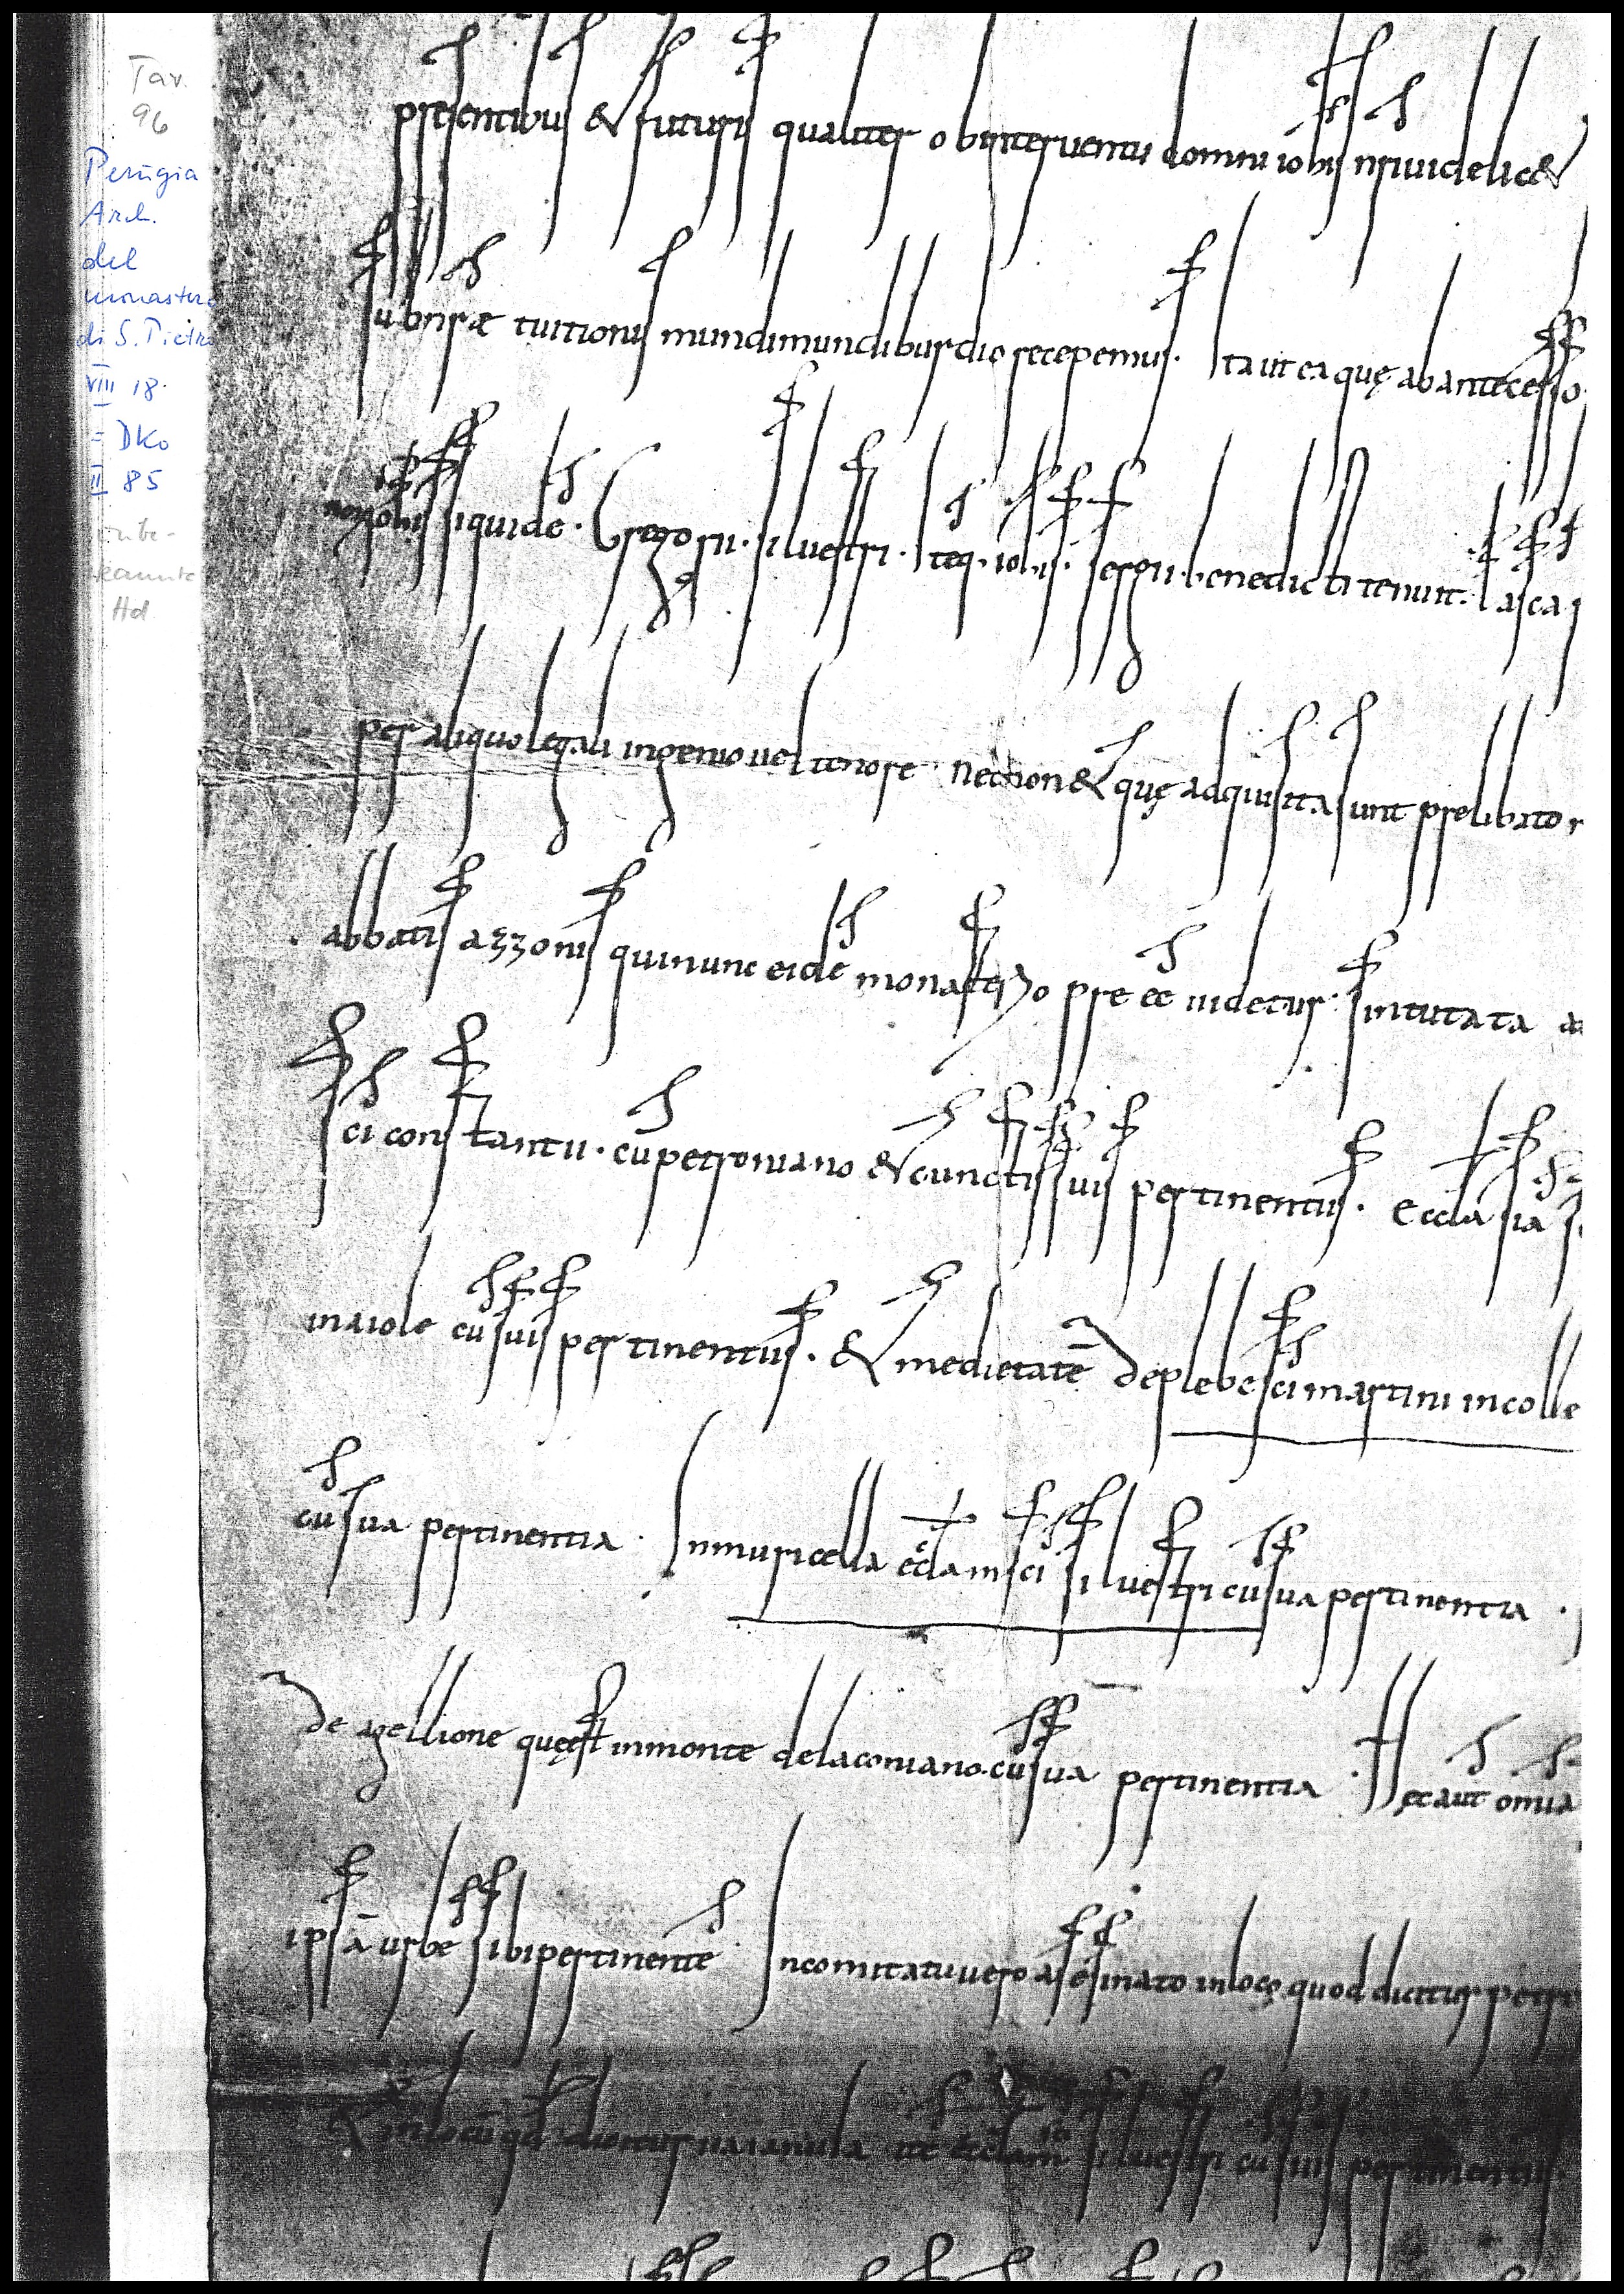 Tav.
96
Perugia
Arch.
del
monastero
di S. Pietro
VIII 18.
= DKo
II 85
Hd
presentibus & futuris qualiter ob interventū domni iohis nri videlic&
sub nrae tuitionis mundi mundiburdio recepemus. Ita ut ea quę ab antecesso
siquidē. Gregorii. silvestri. Itēq. iohis. sergii. benedicti tenuit.
per aliquo legali ingenio vel tenore Necnon & quę adquisita sunt prelibato
abbatis azzonis qui nunc eidē monasterio preeē videtur. Sint utata
sci constantii. cū petroniano & cunctis suis pertinentiis. Ecclasia
maiole cū suis pertinentiis. & medietatē de plebe sci martini in colle
cū sua pertinentia. In muricella ecclam sci silvestri cū sua pertinentia.
De agellione quę est in monte de laconiano. cū sua pertinentia. Hec aut omia
ipsā urbē sibi pertinente. In comitatu vero asesinato in locę quod dicitur petri
& in locū qd dicitur silvestri cū suis pertinentiis